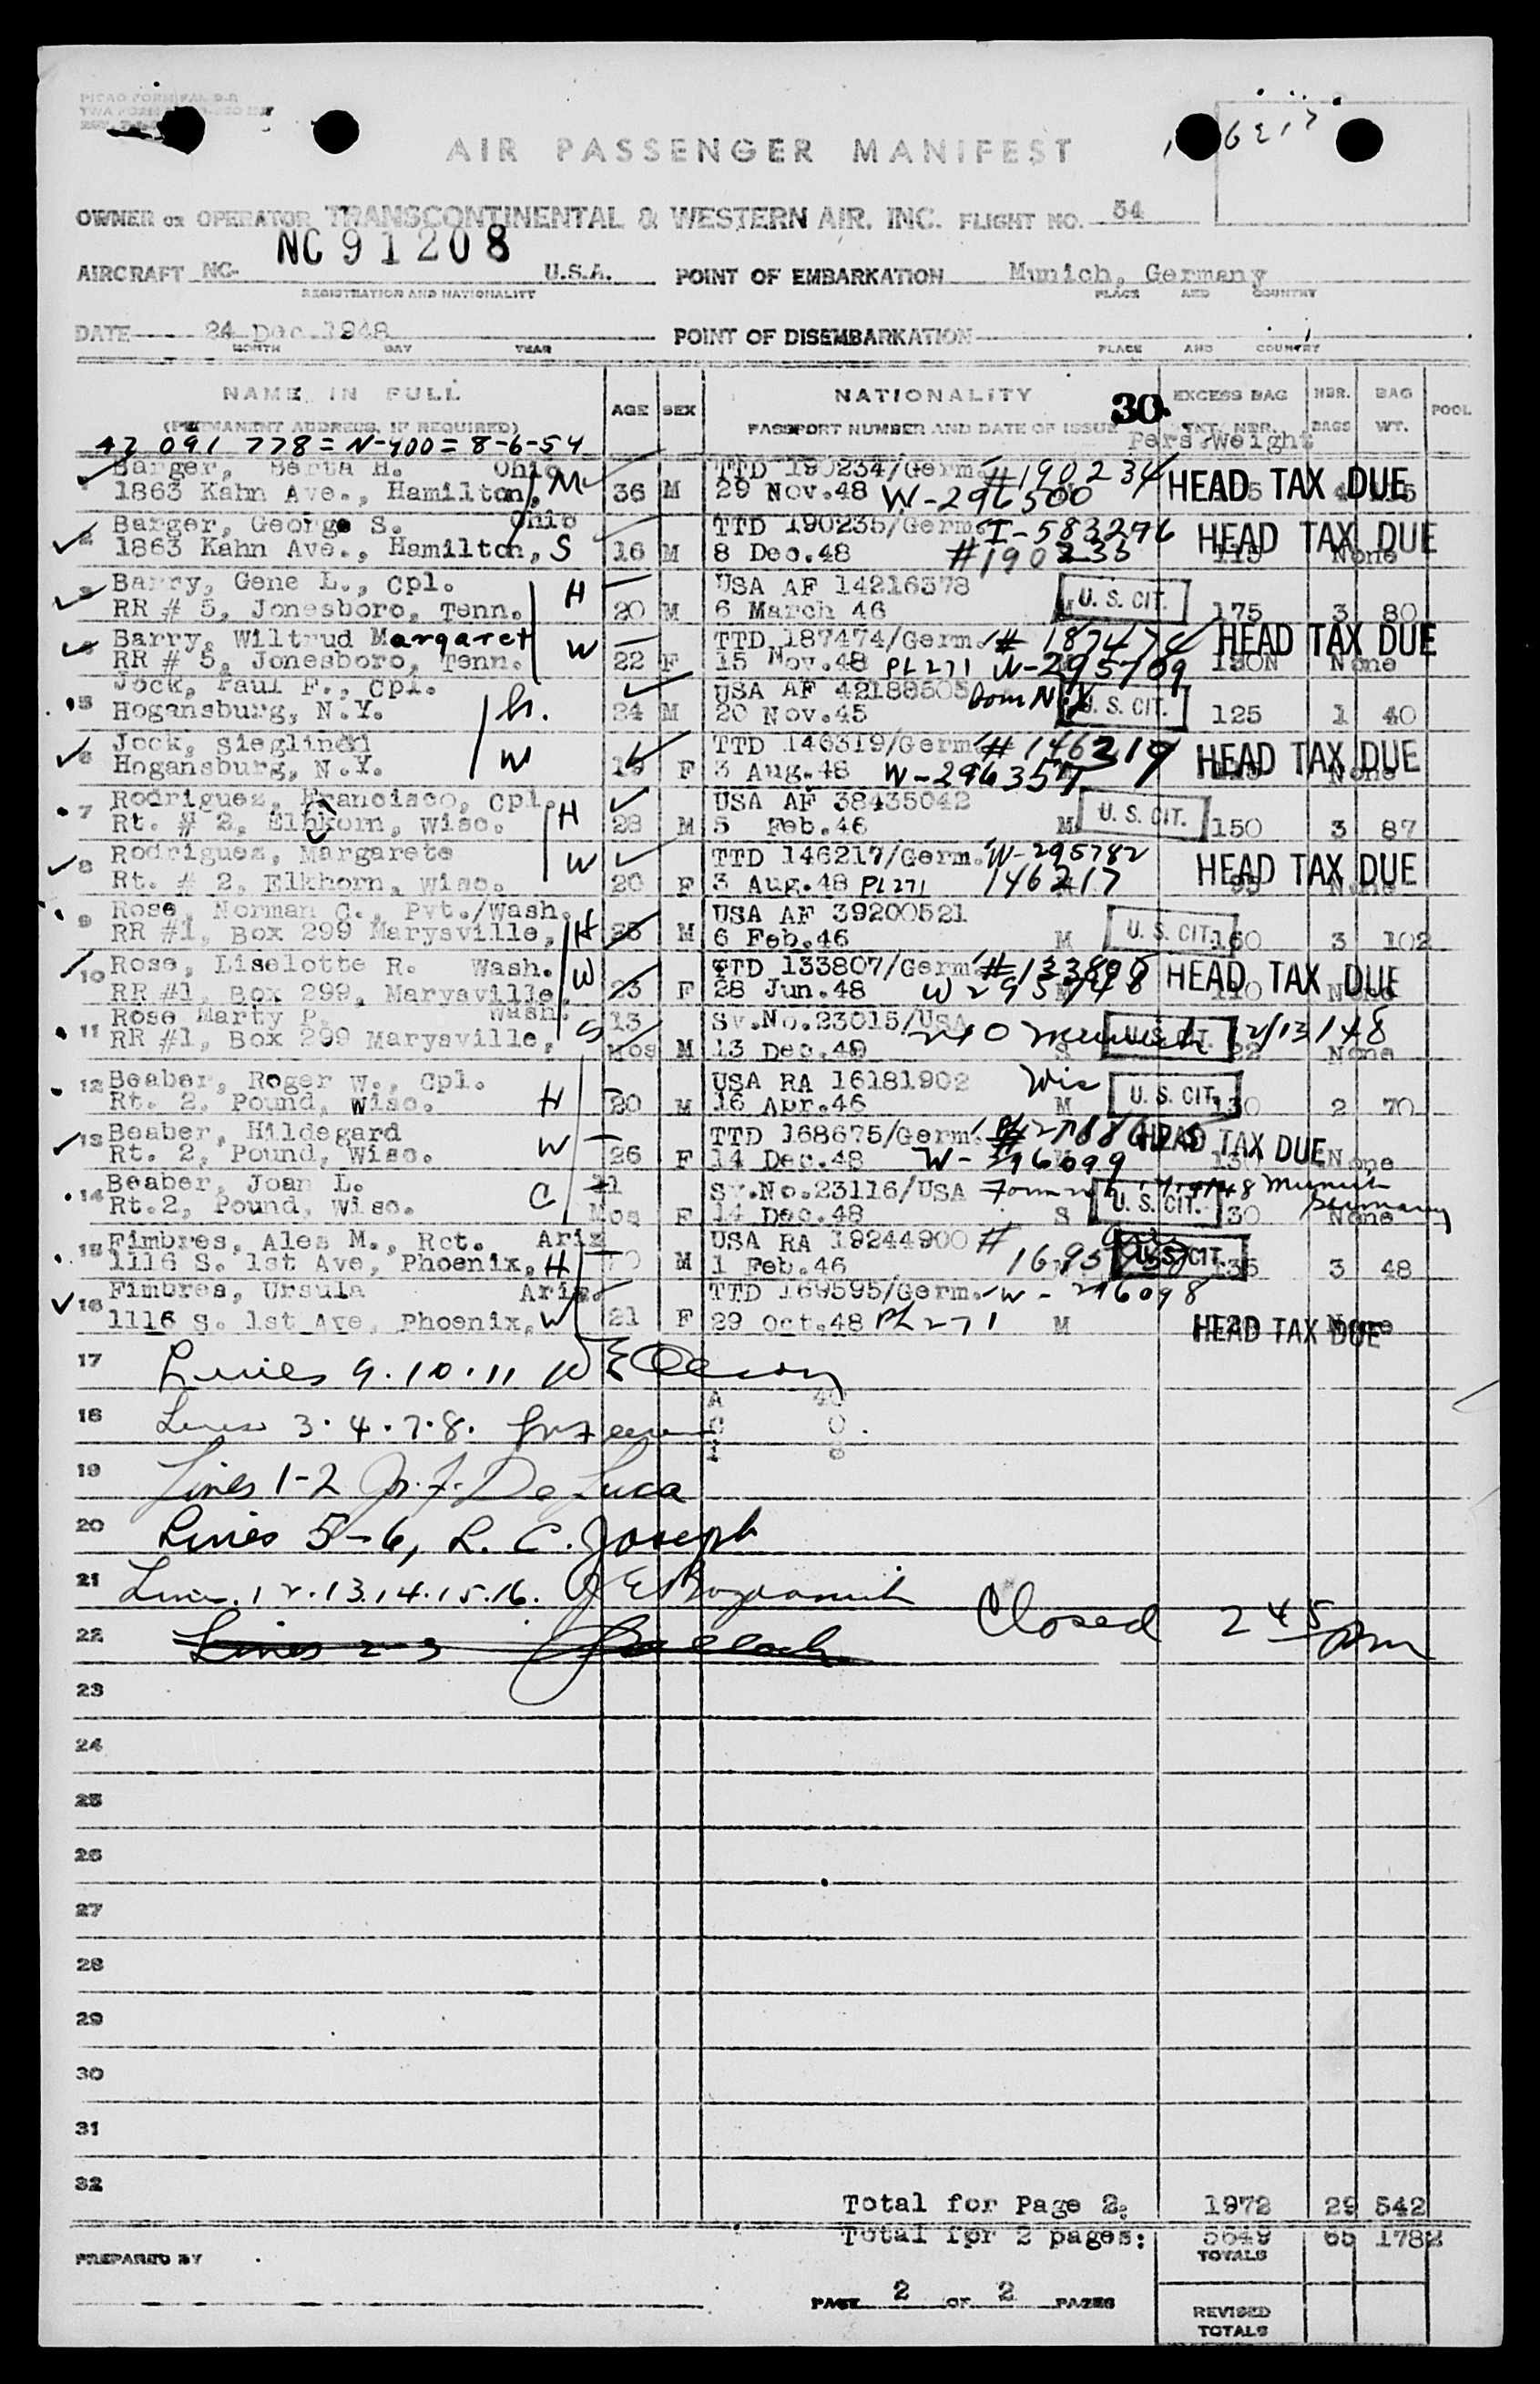 AIR PASSENGER MANIFEST
OWNER OR OPERATOR TRANSCONTINENTAL & WESTERN AIR, INC. FLIGHT NO. 54
NC 91208
AIRCRAFT NC- U.S.A. POINT OF EMBARKATION Munich, Germany
REGISTRATION AND NATIONALITY PLACE AND COUNTRY
DATE 24 Dec 1948 POINT OF DISEMBARKATION
MONTH DAY YEAR PLACE AND COUNTRY
NAME IN FULL AGE SEX NATIONALITY 30. EXCESS BAG NBR. BAG POOL
(PERMANENT ADDRESS, IF REQUIRED) PASSPORT NUMBER AND DATE OF ISSUE TKT. NBR. BAGS WT.
Pers. Weight
091 778 = N-400 = 8-6-54
Barger, Berta H. Ohio TTD 190234/Germ. #190234 HEAD TAX DUE
1 1863 Kahn Ave., Hamilton, M 36 M 29 Nov.48 W-296500
Barger, George S. Ohio TTD 190235/Germ. I-583296 HEAD TAX DUE
2 1863 Kahn Ave., Hamilton, S 16 M 8 Dec.48 #190235 115 None
3 Barry, Gene L., Cpl. H USA AF 14216378 U. S. CIT.
RR # 5, Jonesboro, Tenn. 20 M 6 March 46 M 175 3 80
4 Barry, Wiltrud Margaret W TTD 187474/Germ. # 187474 HEAD TAX DUE
RR # 5, Jonesboro, Tenn. 22 F 15 Nov.48 PL271 W-295709 None
5 Jock, Paul F., Cpl. h. USA AF 42188505 U. S. CIT.
Hogansburg, N.Y. 24 M 20 Nov.45 125 1 40
6 Jock, Sieglinde W TTD 146319/Germ. # 146319 HEAD TAX DUE
Hogansburg, N.Y. 19 F 3 Aug.48 W-296357 None
7 Rodriguez, Francisco, Cpl. H USA AF 38435042 U. S. CIT.
Rt. # 2, Elhkorn, Wisc. 28 M 5 Feb.46 M 150 3 87
8 Rodriguez, Margarete W TTD 146217/Germ. W-295782 HEAD TAX DUE
Rt. # 2, Elkhorn, Wisc. 20 F 3 Aug.48 PL271 146217 95 None
9 Rose, Norman C., Pvt./Wash. USA AF 39200521 U. S. CIT.
RR #1, Box 299 Marysville, H 25 M 6 Feb.46 M 160 3 102
10 Rose, Liselotte R. Wash. W TTD 133807/Germ. HEAD TAX DUE
RR #1, Box 299, Marysville, 23 F 28 Jun.48 110 None
11 Rose Marty P. Wash. S 13 Sv.No.23015/USA U. S. CIT. 12/13/48
RR #1, Box 299 Marysville, Mos M 13 Dec.48 S 22 None
12 Beaber, Roger W., Cpl. USA RA 16181902 Wis U. S. CIT.
Rt. 2, Pound, Wisc. H 20 M 16 Apr.46 M 130 2 70
13 Beaber, Hildegard W TTD 168675/Germ. HEAD TAX DUE
Rt. 2, Pound, Wisc. 26 F 14 Dec.48 W-296099 130 None
14 Beaber, Joan L. C 11 Sv.No.23116/USA U. S. CIT. Munich Germany
Rt.2, Pound, Wisc. Mos F 14 Dec.48 S 30 None
15 Fimbres, Alex M., Rct. Ariz USA RA 19244900 # U. S. CIT.
1116 S. 1st Ave, Phoenix, H M 1 Feb.46 135 3 48
16 Fimbres, Ursula Ariz. TTD 169595/Germ. W-296098
1116 S. 1st Ave, Phoenix, W 21 F 29 Oct.48 PL 271 M HEAD TAX DUE
17 Lines 9.10.11
A 40
18 Lines 3.4.7.8.
C 0
I 8
19 Lines 1-2 De Luca
20 Lines 5-6, L. C. Joseph
21 Lines 12.13.14.15.16. Closed 2 45 pm
22 Lines 2-3
23
24
25
26
27
28
29
30
31
32
Total for Page 2: 1972 29 542
Total for 2 pages: 5649 65 1782
PREPARED BY TOTALS
PAGE 2 OF 2 PAGES
REVISED
TOTALS